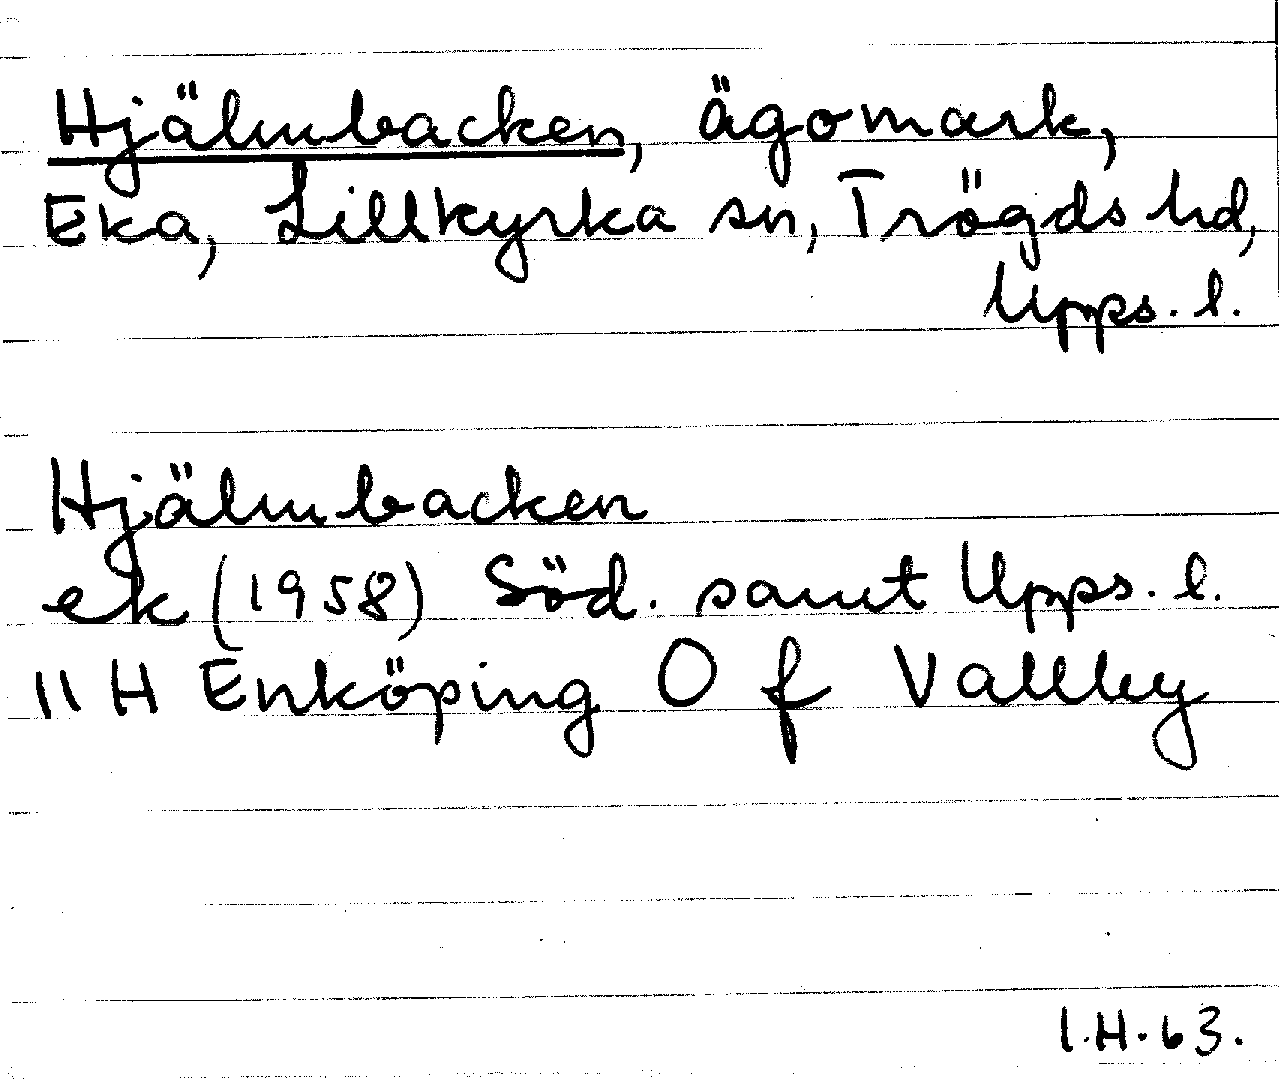 Hjälmbacken, ägomark,
Eka, Lillkyrka sn, Trögds hd,
Upps. l.
Hjälmbacken
ek (1958) Söd. samt Upps. l.
11 H Enköping O f Vallby
I.H.63.